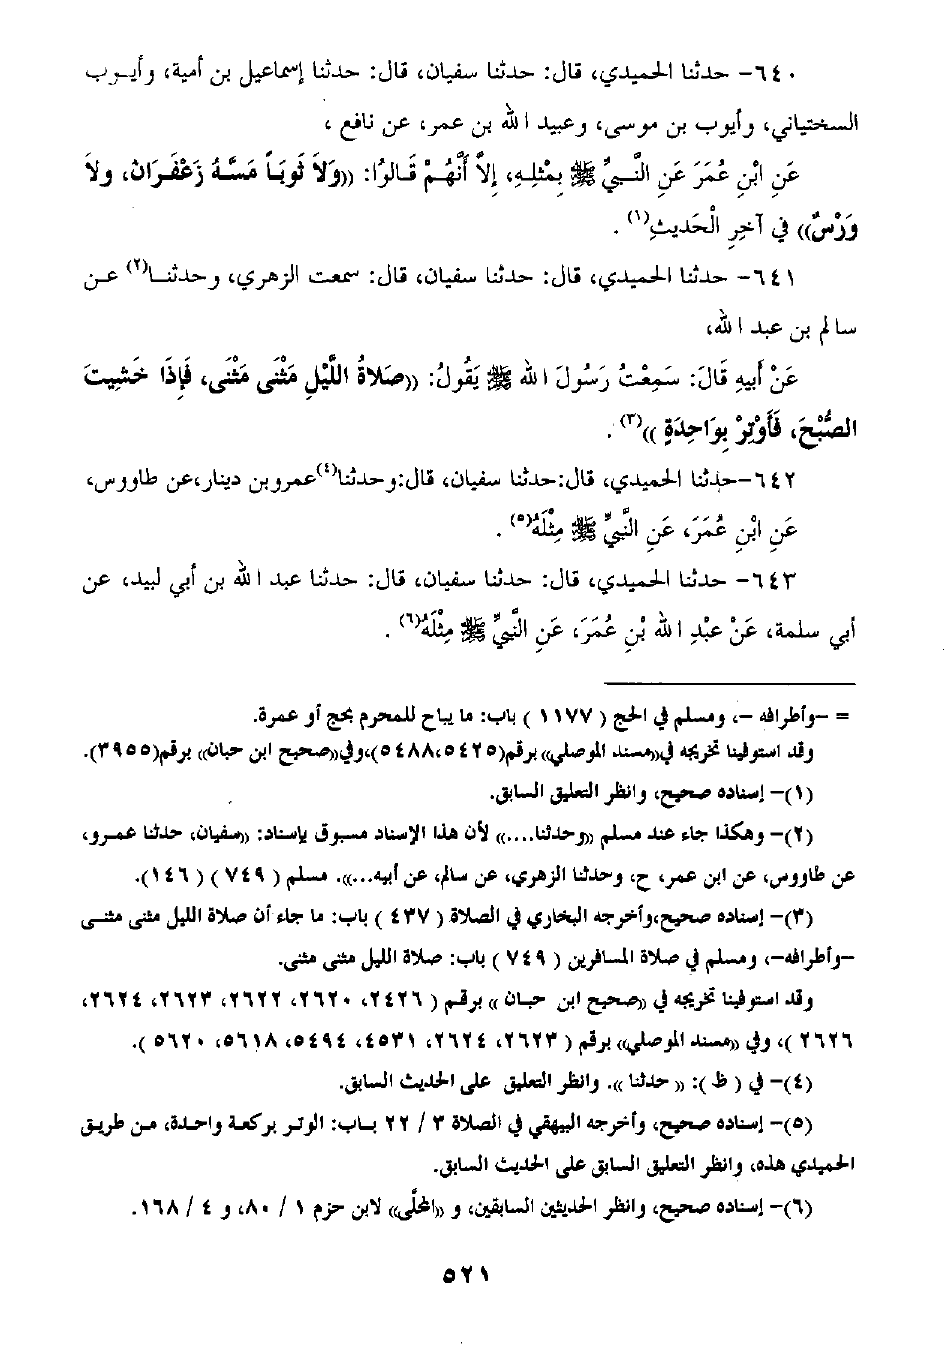 ٦٤٠- حدثنا الحميدي، قال: حدثنا سفيان، قال: حدثنا إسماعيل بن أمية، وأيـوب
السختياني، وأيوب بن موسى، وعبيد الله بن عمر، عن نافع ،
عَنِ ابْنِ عُمَرَ عَنِ النَّبِيِّ ﷺ بِمْثلِهِ، إِلاَّ أَنَّهُمْ قَالُوا: ((وَلاَ ثَوبَاً مَسَّهُ زَعْفَرَان، ولاَ
وَرْسٌ)) في آخِرِ الْحَديثِ(١) .
٦٤١- حدثنا الحميدي، قال: حدثنا سفيان، قال: سمعت الزهري، وحدثنـا(٢) عـن
سالم بن عبد الله،
عَنْ أَبيهِ قَالَ: سَمِعْتُ رَسُولَ الله ﷺ يَقُولُ: ((صَلاةُ اللَّيْلِ مَثْنَى مَثْنَى، فَإِذَا خَشِيتَ
الصُّبْحَ، فَأَوْتِرْ بِوَاحِدَةٍ ))(٣) .
٦٤٢-حدثنا الحميدي، قال:حدثنا سفيان، قال:وحدثنا(٤)عمروبن دينار،عن طاووس،
عَنِ ابْنِ عُمَرَ، عَنِ النَّبِيِّ ﷺ مِثْلَهُ(٥) .
٦٤٣- حدثنا الحميدي، قال: حدثنا سفيان، قال: حدثنا عبد الله بن أبي لبيد، عن
أبي سلمة، عَنْ عبْدِ الله بْنِ عُمَرَ، عَنِ النَّبِيِّ ﷺ مِثْلَهُ(٦) .
= -وأطرافه -، ومسلم في الحج ( ١١٧٧ ) باب: ما يباح للمحرم بحج أو عمرة.
وقد استوفينا تخريجه في((مسند الموصلي)) برقم(٥٤٢٥،٥٤٨٨)،وفي((صحيح ابن حبان)) برقم(٣٩٥٥).
(١)- إسناده صحيح، وانظر التعليق السابق.
(٢)- وهكذا جاء عند مسلم ((وحدثنا....)) لأن هذا الإسناد مسبوق بإسناد: ((سفيان، حدثنا عمرو،
عن طاووس، عن ابن عمر، ح، وحدثنا الزهري، عن سالم، عن أبيه...)). مسلم ( ٧٤٩ ) ( ١٤٦).
(٣)- إسناده صحيح،وأخرجه البخاري في الصلاة ( ٤٣٧ ) باب: ما جاء أن صلاة الليل مثنى مثنـى
-وأطرافه-، ومسلم في صلاة المسافرين ( ٧٤٩ ) باب: صلاة الليل مثنى مثنى.
وقد استوفينا تخريجه في ((صحيح ابن حبان )) برقـم ( ٢٤٢٦، ٢٦٢٠، ٢٦٢٢، ٢٦٢٣، ٢٦٢٤،
٢٦٢٦ )، وفي ((مسند الموصلي)) برقم ( ٢٦٢٣، ٢٦٢٤، ٤٥٣١، ٥٤٩٤، ٥٦١٨، ٥٦٢٠ ).
(٤)- في ( ظ ): (( حدثنا )). وانظر التعليق على الحديث السابق.
(٥)- إسناده صحيح، وأخرجه البيهقي في الصلاة ٣ / ٢٢ بـاب: الوتر بركعة واحدة، مـن طريق
الحميدي هذه، وانظر التعليق السابق على الحديث السابق.
(٦)- إسناده صحيح، وانظر الحديثين السابقين، و ((المحلَّى)) لابن حزم ١ / ٨٠، و ٤ / ١٦٨.
٥٢١